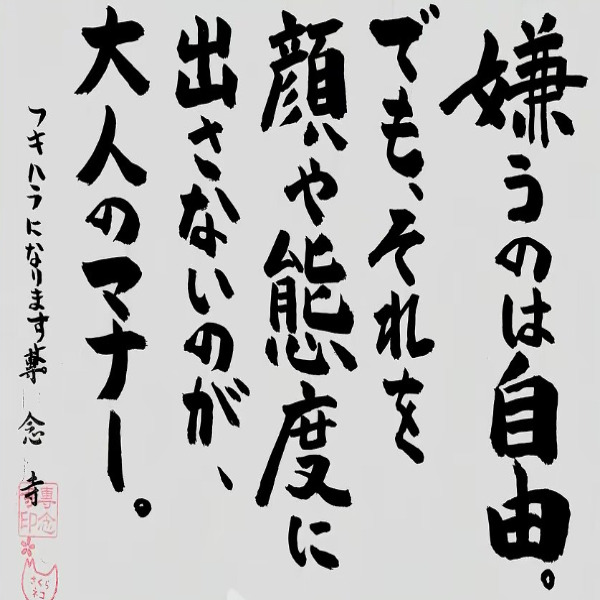 嫌うのは自由。
でも、それを
顔や態度に
出さないのが、
大人のマナー。
フキハラになります 薬念寺
專念寺印
さくらネコ